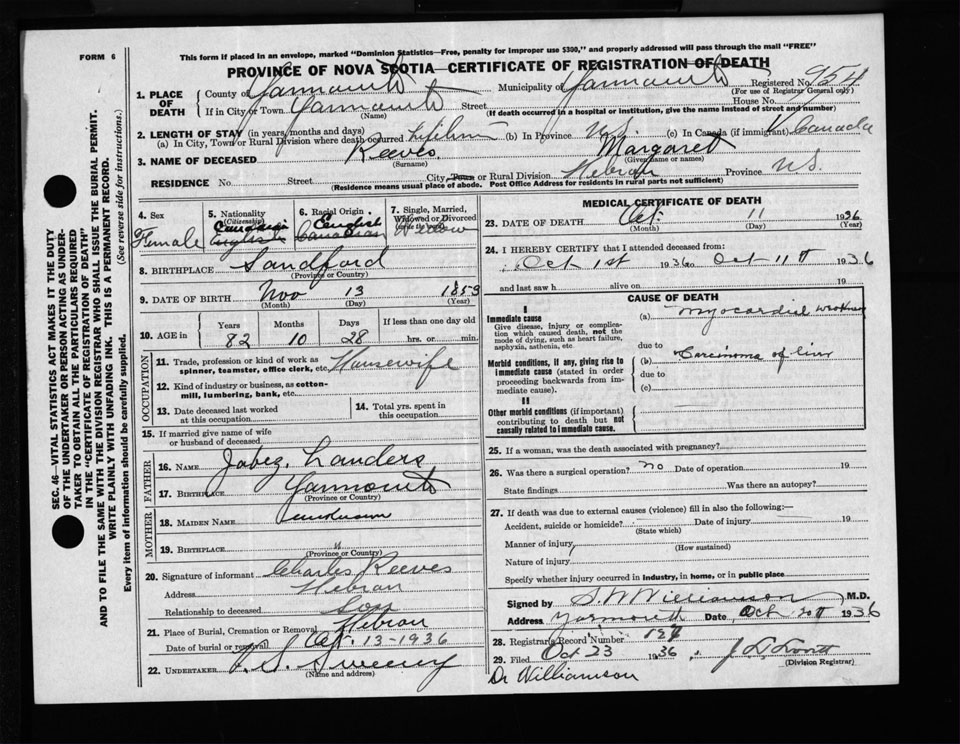 FORM 6
This form if placed in an envelope, marked "Dominion Statistics—Free, penalty for improper use $300," and properly addressed will pass through the mail "FREE"
PROVINCE OF NOVA SCOTIA—CERTIFICATE OF REGISTRATION OF DEATH
1. PLACE OF DEATH County of Yarmouth Municipality of Yarmouth Registered No. 954
(For use of Registrar General only)
If in City or Town Yarmouth Street House No.
(Name) (If death occurred in a hospital or institution, give the name instead of street and number)
2. LENGTH OF STAY (in years, months and days)
(a) In City, Town or Rural Division where death occurred Lifetime (b) In Province N.S. (c) In Canada (if immigrant) Canada
3. NAME OF DECEASED Reeves Margaret
(Surname) (Given name or names)
RESIDENCE No. Street City, Town or Rural Division Hebron Province N.S.
(Residence means usual place of abode. Post Office Address for residents in rural parts not sufficient)
SEC. 46—VITAL STATISTICS ACT MAKES IT THE DUTY
OF THE UNDERTAKER OR PERSON ACTING AS UNDER-
TAKER TO OBTAIN ALL THE PARTICULARS REQUIRED
IN THE "CERTIFICATE OF REGISTRATION OF DEATH"
AND TO FILE THE SAME WITH THE DIVISION REGISTRAR WHO SHALL ISSUE THE BURIAL PERMIT.
WRITE PLAINLY WITH UNFADING INK. THIS IS A PERMANENT RECORD.
Every item of information should be carefully supplied. (See reverse side for instructions.)
4. Sex
Female
5. Nationality
(Citizenship)
Canadian
English
6. Racial Origin
English
Canadian
7. Single, Married,
Widowed or Divorced
Widow
8. BIRTHPLACE Sandford
(Province or Country)
9. DATE OF BIRTH Nov 13 1853
(Month) (Day) (Year)
10. AGE in Years Months Days If less than one day old
82 10 28 hrs. or min.
OCCUPATION
11. Trade, profession or kind of work as
spinner, teamster, office clerk, etc. Housewife
12. Kind of industry or business, as cotton-
mill, lumbering, bank, etc.
13. Date deceased last worked
at this occupation
14. Total yrs. spent in
this occupation
15. If married give name of wife
or husband of deceased
FATHER
16. NAME Jabez Landers
17. BIRTHPLACE Yarmouth
(Province or Country)
MOTHER
18. MAIDEN NAME
19. BIRTHPLACE
(Province or Country)
20. Signature of informant Charles Reeves
Address Hebron
Relationship to deceased Son
21. Place of Burial, Cremation or Removal Hebron
Date of burial or removal Oct. 13-1936
22. UNDERTAKER S. Sweeny
(Name and address)
MEDICAL CERTIFICATE OF DEATH
23. DATE OF DEATH Oct. 11 1936
(Month) (Day) (Year)
24. I HEREBY CERTIFY that I attended deceased from:
Oct 1st 1936 to Oct 11th 1936
and last saw h alive on 19
CAUSE OF DEATH
I
Immediate cause
Give disease, injury or complica-
tion which caused death, not the
mode of dying, such as heart failure,
asphyxia, asthenia, etc.
(a) myocardial
due to
Morbid conditions, if any, giving rise to
immediate cause (stated in order
proceeding backwards from im-
mediate cause).
(b) Carcinoma of liver
due to
(c)
II
Other morbid conditions (if important)
contributing to death but not
causally related to immediate cause.
25. If a woman, was the death associated with pregnancy?
26. Was there a surgical operation? no Date of operation 19
State findings Was there an autopsy?
27. If death was due to external causes (violence) fill in also the following:—
Accident, suicide or homicide? Date of injury 19
(State which)
Manner of injury
(How sustained)
Nature of injury
Specify whether injury occurred in industry, in home, or in public place
Signed by S. W Williamson M.D.
Address Yarmouth Date Oct 20th 1936
28. Registrar's Record Number
29. Filed Oct 23 1936
(Division Registrar)
Dr Williamson